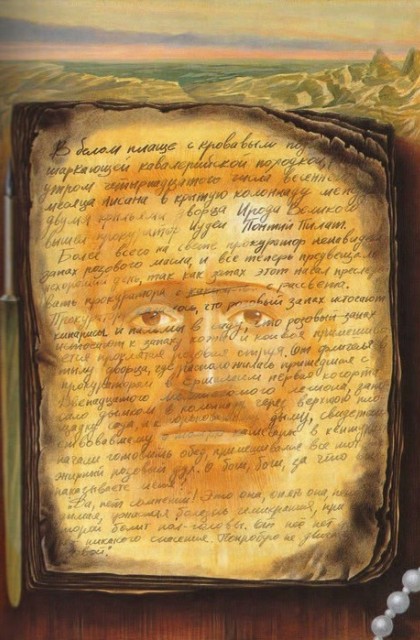 В белом плаще с кровавым под
шаркающей кавалерийской походкой,
утром четырнадцатого числа весеннего
месяца нисана в крытую колоннаду между
двумя крыльями дворца Ирода Великого
вышел прокуратор Иудеи Понтий Пилат.
Более всего на свете прокуратор ненавидел
запах розового масла, и все теперь предвещало
нехороший день, так как запах этот начал преследо
вать прокуратора с рассвета.
что розовый запах источают
кипарисы и пальмы в саду, что розовый запах
к запаху кожи и конвоя примешивает
проклятая розовая струя. От флигелей в
тылу дворца, где расположилась пришедшая с
прокуратором первая когорта
Двенадцатого легиона, зано
сило дымком в колоннаду через верхнюю пло
щадку сада, и к дыму, свидетель
ствовавшему в кентуриях
начали готовить обед, примешивался все тот же
жирный розовый дух. О боги, боги, за что вы
наказываете меня?
"Да, нет сомнений! Это она, опять она, непо
ужасная болезнь гемикрания, при
которой болит пол-головы. От нее нет
нет никакого спасения. Попробую не двигать
головой".